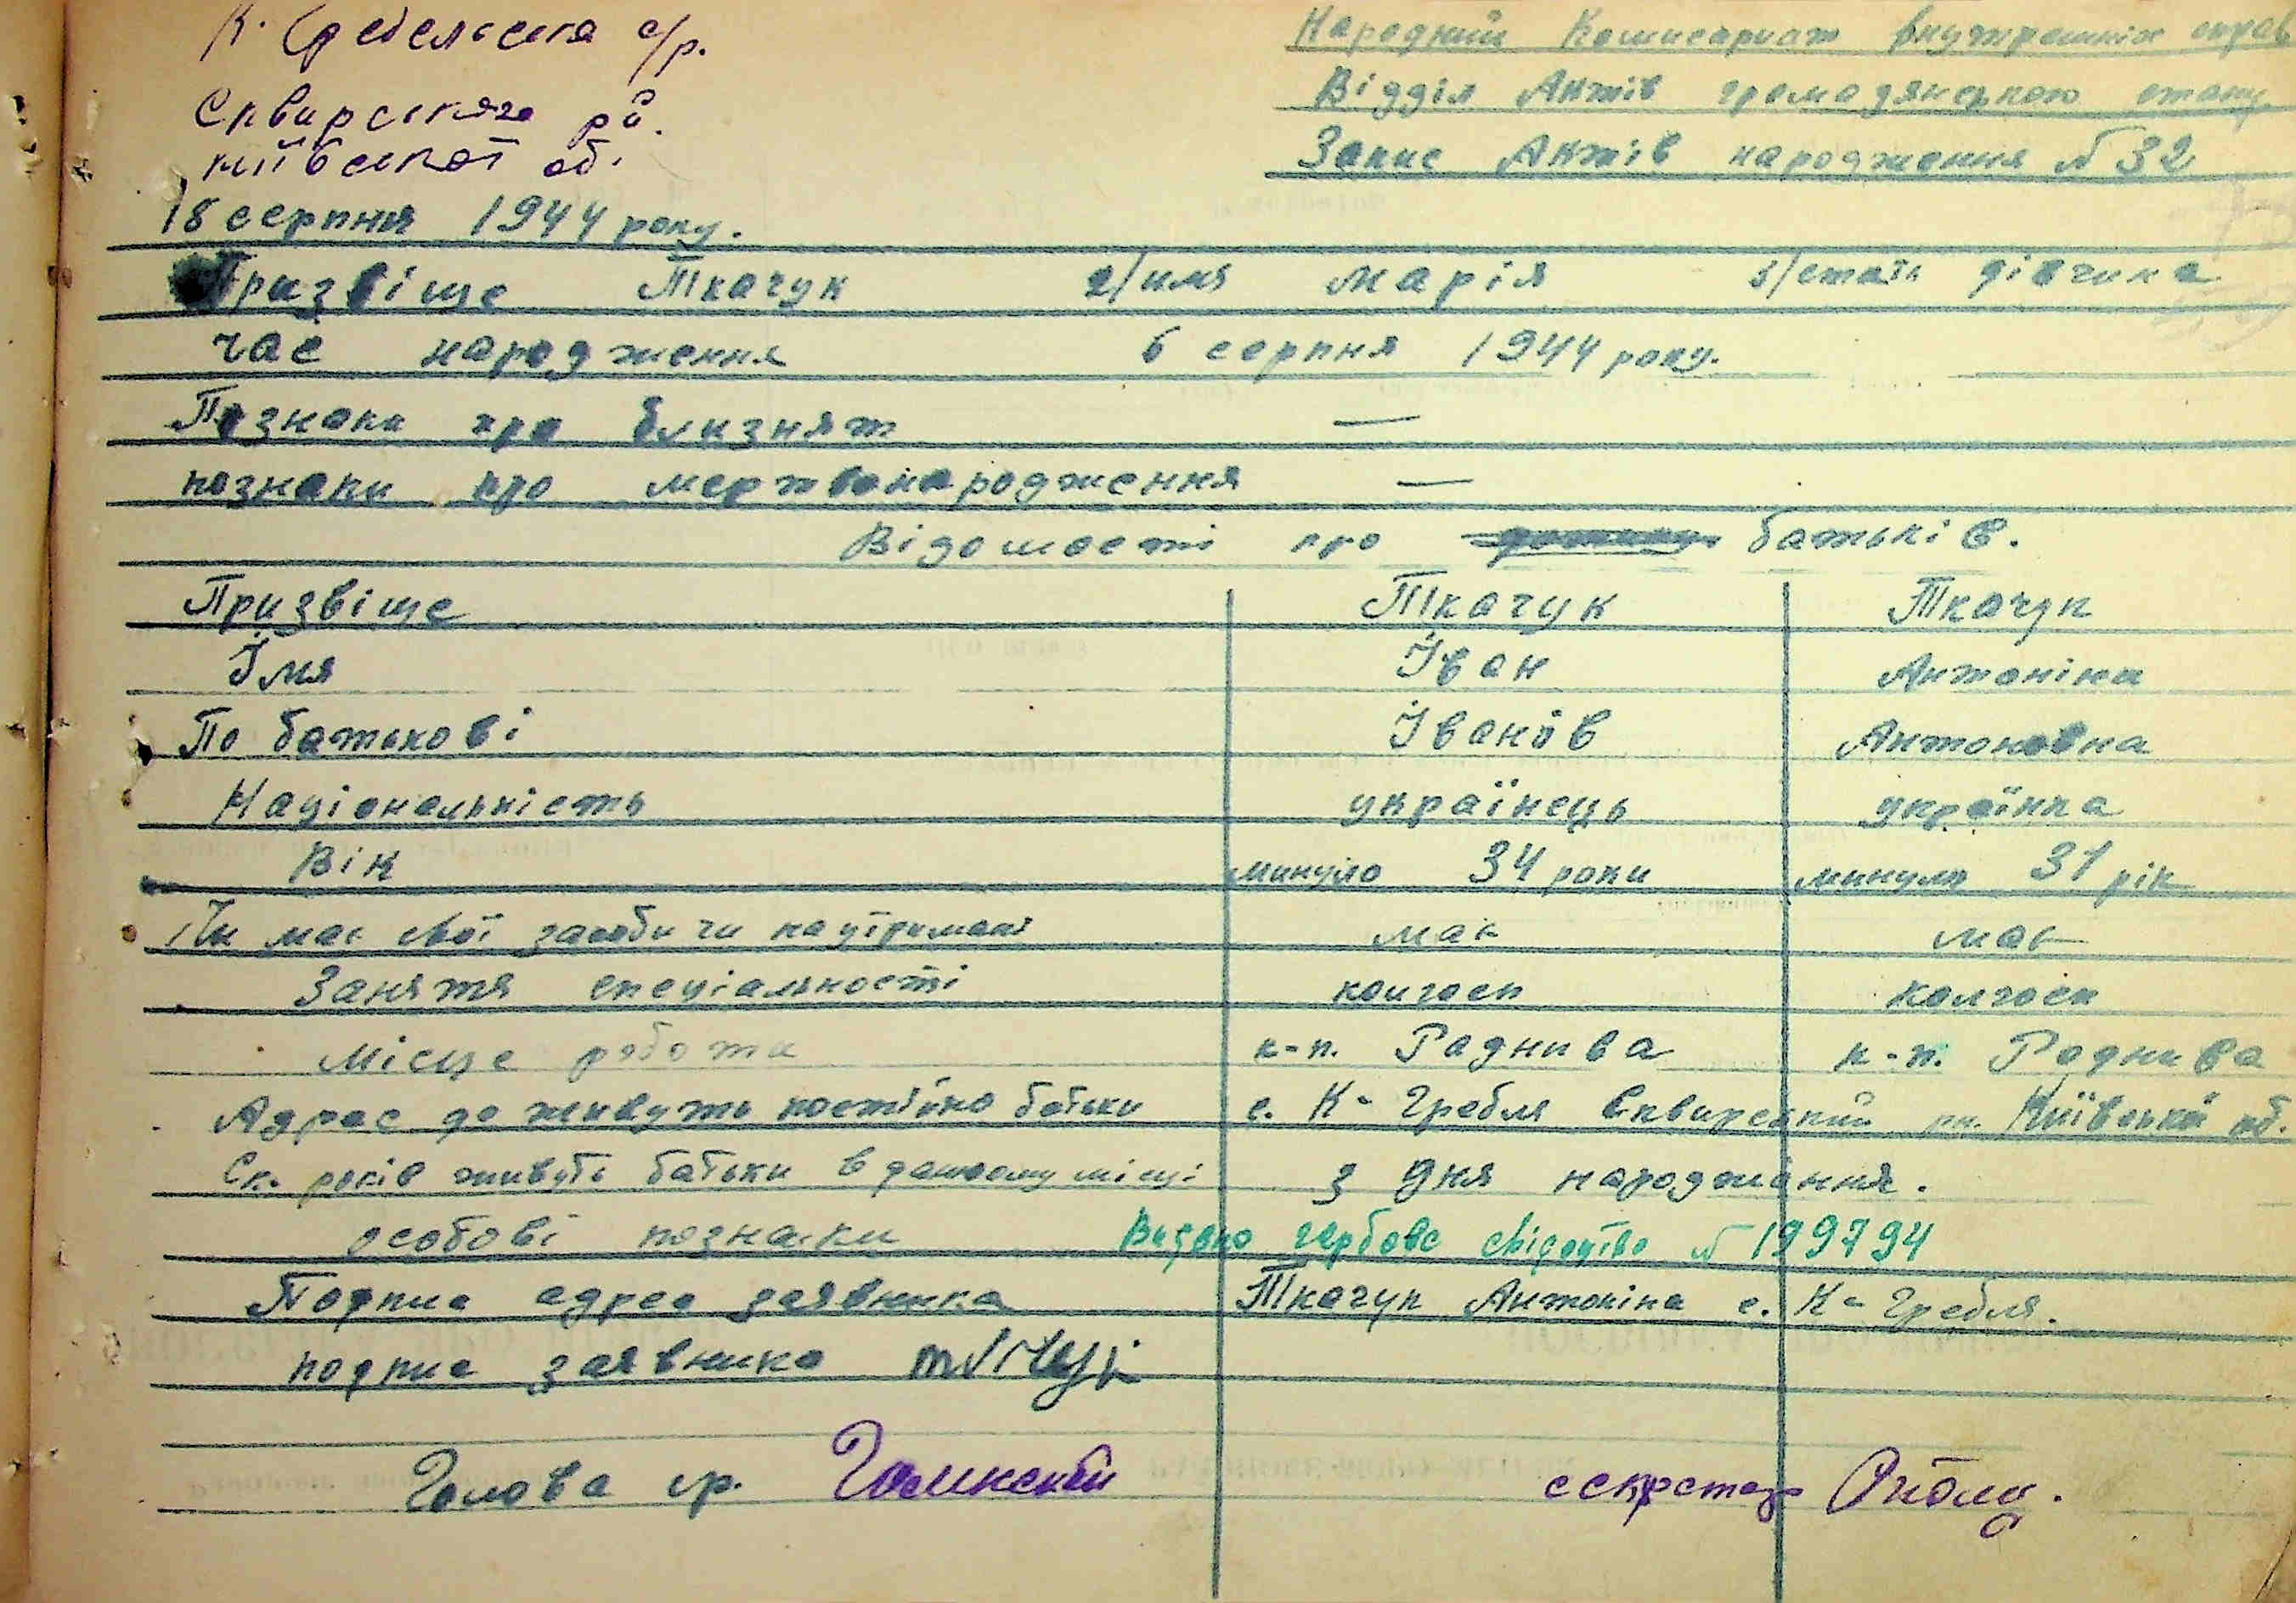 К. Гребельська с/р.
Сквирського рй.
київської об.
18 серпня 1944 року.
Народний Комисариат внутрешніх справ
Відділ Актів громадянського стану
Запис Актів народження № 32
Призвіще Ткачук 2/имя Марія 3/стать дівчина
час народження 6 серпня 1944 року.
Познаки про близнят —
познаки про мертвонародження —
Відомості про батьків.
Призвіще Ткачук Ткачук
Імя Іван Антоніна
По батькові Іванов Антоновна
Національність українець українка
Вік минуло 34 роки минуло 31 рік
Чи має свої засоби чи на утриманні має має
Заняття спеціальності колгосп колгосп
Місце роботи к-п. Раднива к-п. Раднива
Адрес де живуть постійно батьки с. К-Гребля Сквирський рн. Київської об.
Ск. років живуть батьки в данному місці з дня народжання.
особові познаки Видано гербове свідоцтво № 199794
Подпис адрес заявника Ткачук Антоніна с. К-Гребля.
подпис заявника
Голова ср.
секретар